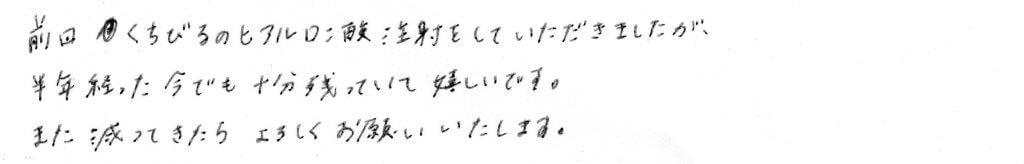 前回くちびるのヒアルロン酸注射をしていただきましたが、
半年経った今でも十分残っていて嬉しいです。
また減ってきたらよろしくお願いいたします。